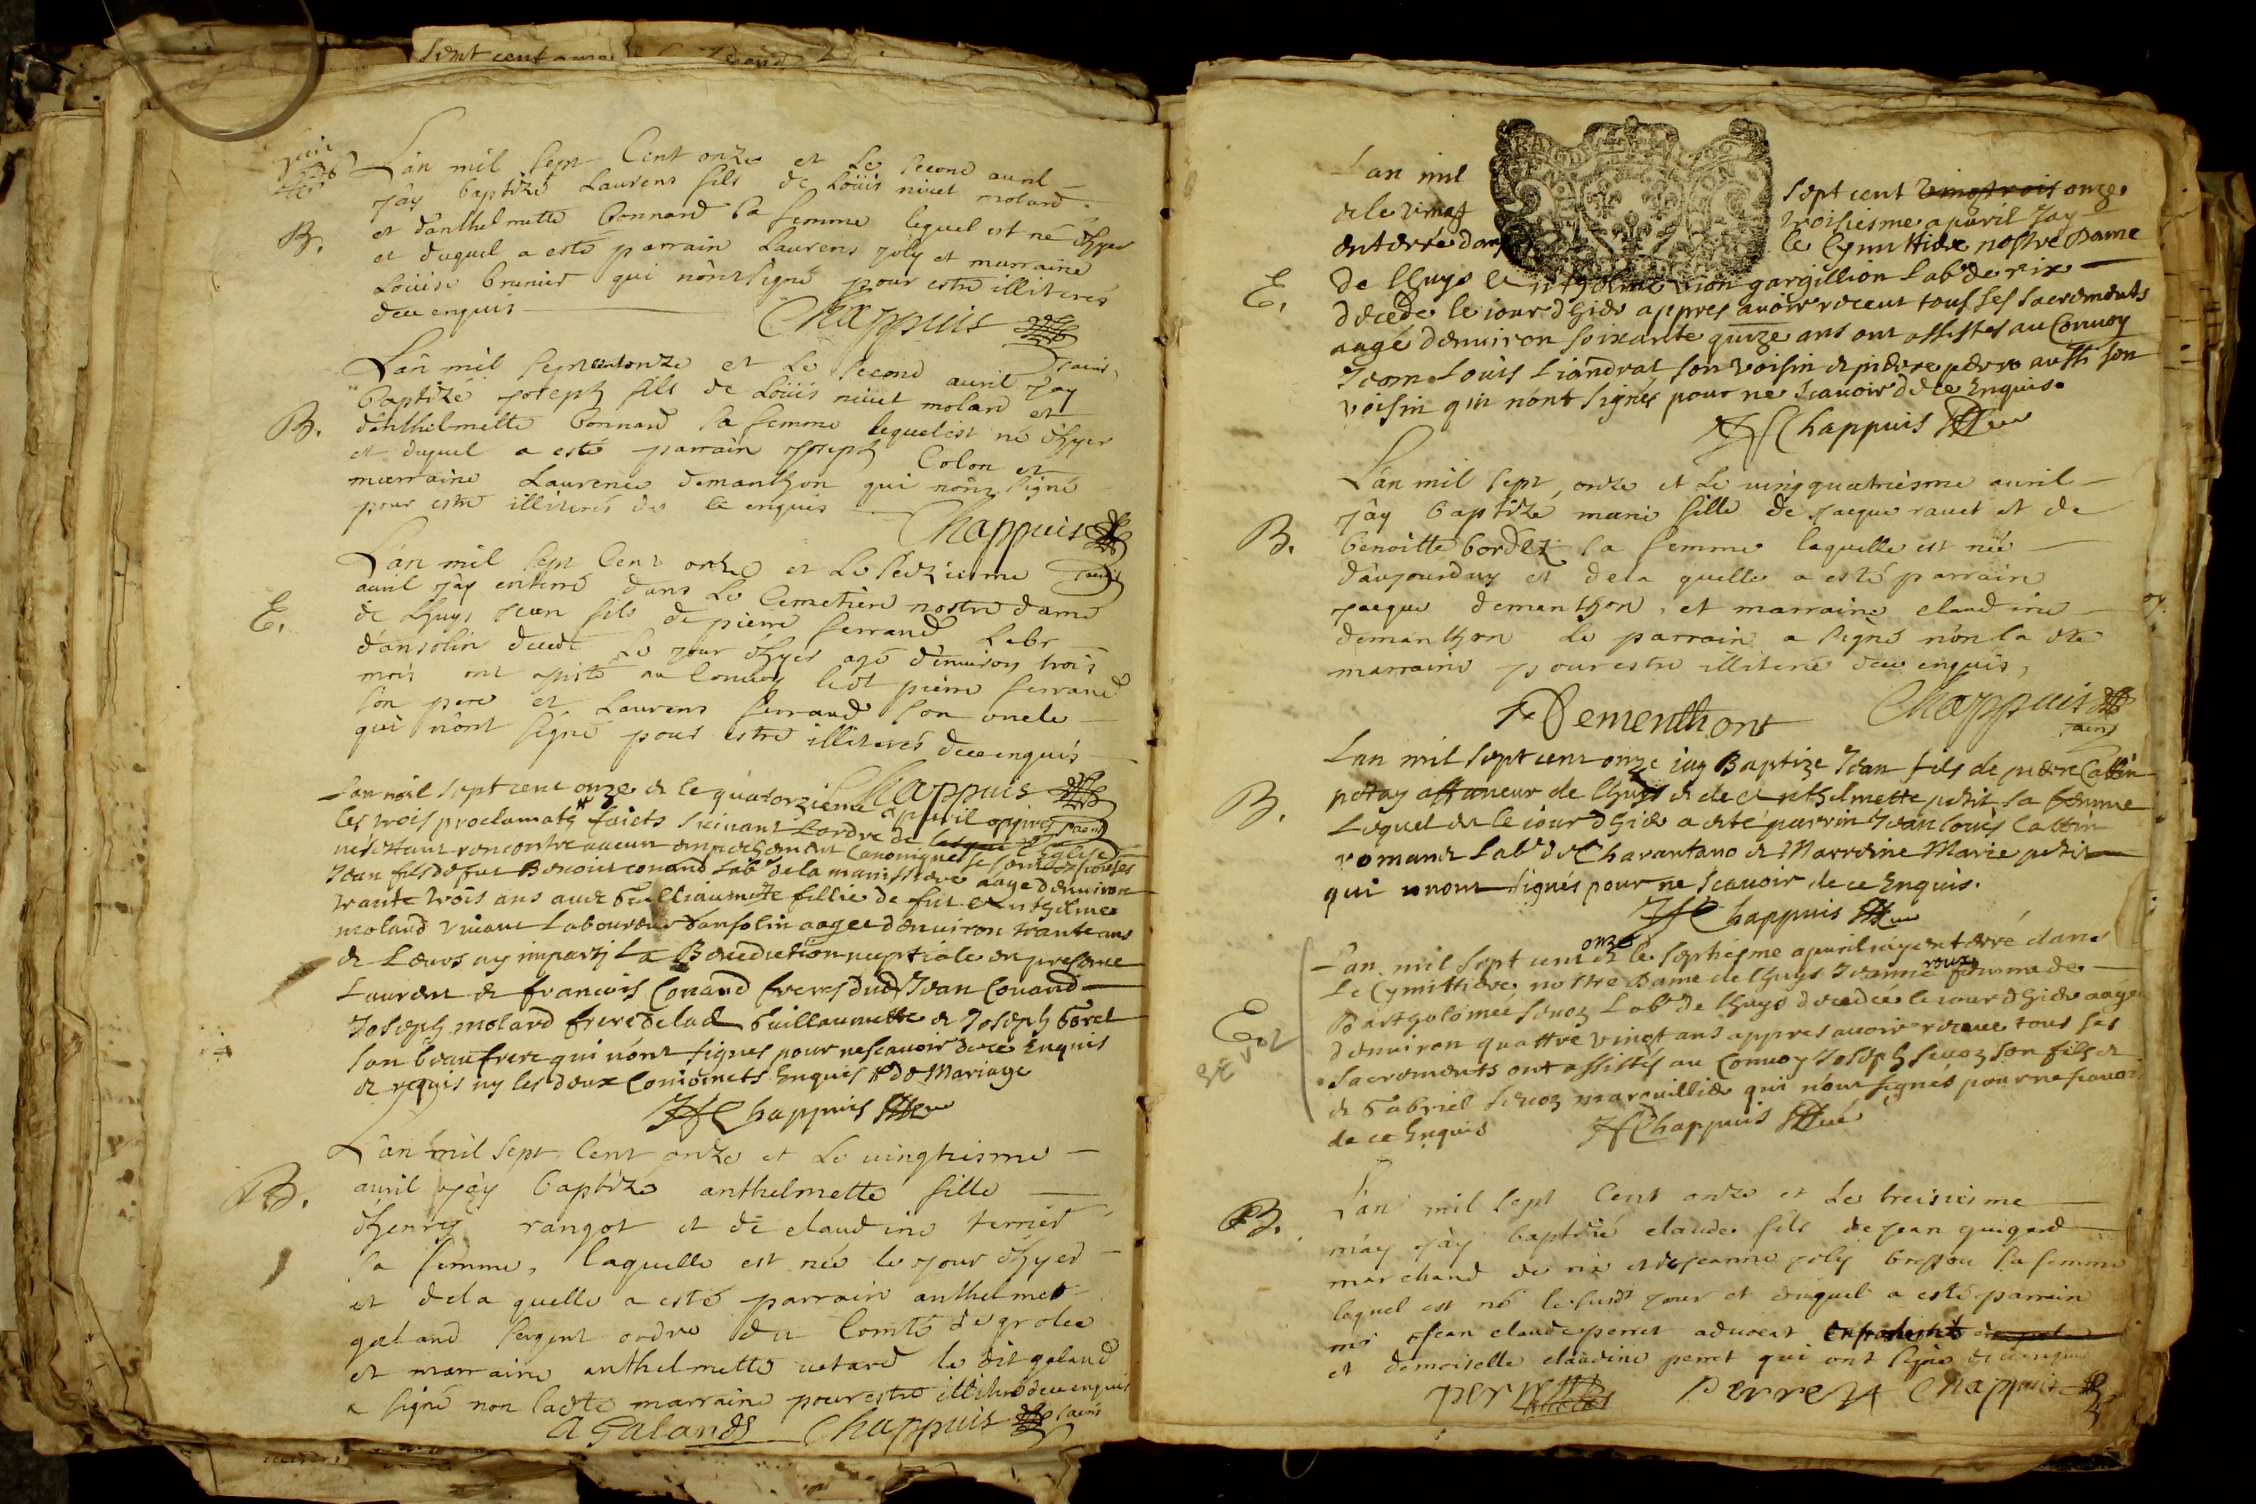 L'an mil sept Cent onze et Le second auril
J'ay baptizé Laurens fils de Loüis niuet molard
et d'anthelmette bonnard sa femme lequel est né d'hyer
et duquel a esté parrain Laurens joly et marraine
Loüise brunier qui n'ont signé pour estre illiterés
de ce enquis
Chappuis
B.
L'an mil sept cent onze et Le second auril J'ay
baptizé joseph fils de Loüis niuet molard et
d'anthelmette bonnard sa femme lequel est né d'hyer
et duquel a esté parrain joseph Colon et
marraine Laurence demanthon qui n'ont signé
pour estre illiterés de ce enquis
Chappuis
B.
L'an mil sept Cent onze et Le seiziesme
auril j'ay enterré dans Le Cemetiere nostre dame
de Lhuys jean fils de pierre ferrand Labr
d'ansolin decedé Le jour d'hyer agé d'enuiron trois
mois ont assisté au Conuoy ledt pierre ferrand
son pere et Laurens ferrand son oncle
qui n'ont signé pour estre illiterés de ce enquis
Chappuis
E.
L'an mil sept cent onze & le quatorzieme apuril appres
les trois proclamats faicts suiuant L'ordre de L'Eglise
n'estant rencontre aucun empechement Canonique se sont
Jean fils de fut Benoist conand Labr de la aage d'enuiron
trante trois ans auec Guilliaumette fillie de fut Anthelme
molard viuant Laboureur d'ansolin aagee d'enuiron trante ans
& Leurs ay imparty La Benediction nuptiale en presence
Laurent & francois Conand freres dud Jean Conand
Joseph molard frere de lad Guillaumette & Joseph Goret
son beaufrere qui n'ont signes pour ne scauoir de ce Enquis
& requis ny les deux Conioincts Enquis de Mariage
Chappuis
L'an mil sept Cent onze et Le vingtiesme
auril j'ay baptizé anthelmette fille
d'henry rangot et de claudine terrier
sa femme, laquelle est née le jour d'hyer
et de la quelle a esté parrain anthelme
galand sergent ordre du Comté de grolee
et marraine anthelmette uetard le dit galand
a signé non ladte marraine pour estre illiteré de ce enquis
A Galand Chappuis
B.
L'an mil sept cent onze
& le vingt troisiesme apuril J'ay
enterré dans le Cymittiere nostre Dame
de Lhuys Anthelme gargillion Labr de rix
decedé le iour d'hier appres auoir receut tous ses sacrements
aagé d'enuiron soixante quinze ans ont assistes au Conuoy
Jean Louis Liandrat son voisin & pierre perro aussi son
voisin qui n'ont signés pour ne scauoir de ce Enquis.
Chappuis
E.
L'an mil sept, onze et Le uingquatriesme auril
j'ay baptizé marie fille de jacque rauet et de
benoitte bordez sa femme laquelle est née
d'aujourduy et de la quelle a esté parrain
jacque demanthon, et marraine claudine
demanthon Le parrain a signé non la dte
marraine pour estre illiteré de ce enquis,
Dementhont Chappuis
B.
L'an mil sept cent onze iay Baptize Jean fils de pierre Cattin
petay affaneur de Lhuys & de Anthelmette petit sa femme
Lequel est le iour d'hier a esté parrin Jean Louis Cattin
romand Labr de Charantano & Marreine Marie petit
qui n'ont signés pour ne scauoir de ce Enquis.
Chappuis
B.
L'an mil sept cent onze & le septiesme apuril iay enterré dans
Le Cymittiere nostre Dame de Lhuys Jeanne roux femme de
Barthelomée seuoz Labr de Lhuys decedée le iour d'hier aagée
d'enuiron quattre vingt ans appres auoir receue tous ses
sacrements ont assistés au Conuoy Joseph seuoz son fils &
& Gabriel seuoz marguillier qui n'ont signés pour ne scauoir
de ce Enquis Chappuis
E.
L'an mil sept Cent onze et Le treisiesme
may j'ay baptizé claude fils de jean guigard
marchand de rix et de jeanne joly bressou sa femme
lequel est né le susdt jour et duquel a esté parrain
mr jean claude perret aduocat
et demoiselle claudine perret qui ont signé de ce enquis
perret Perret Chappuis
B.